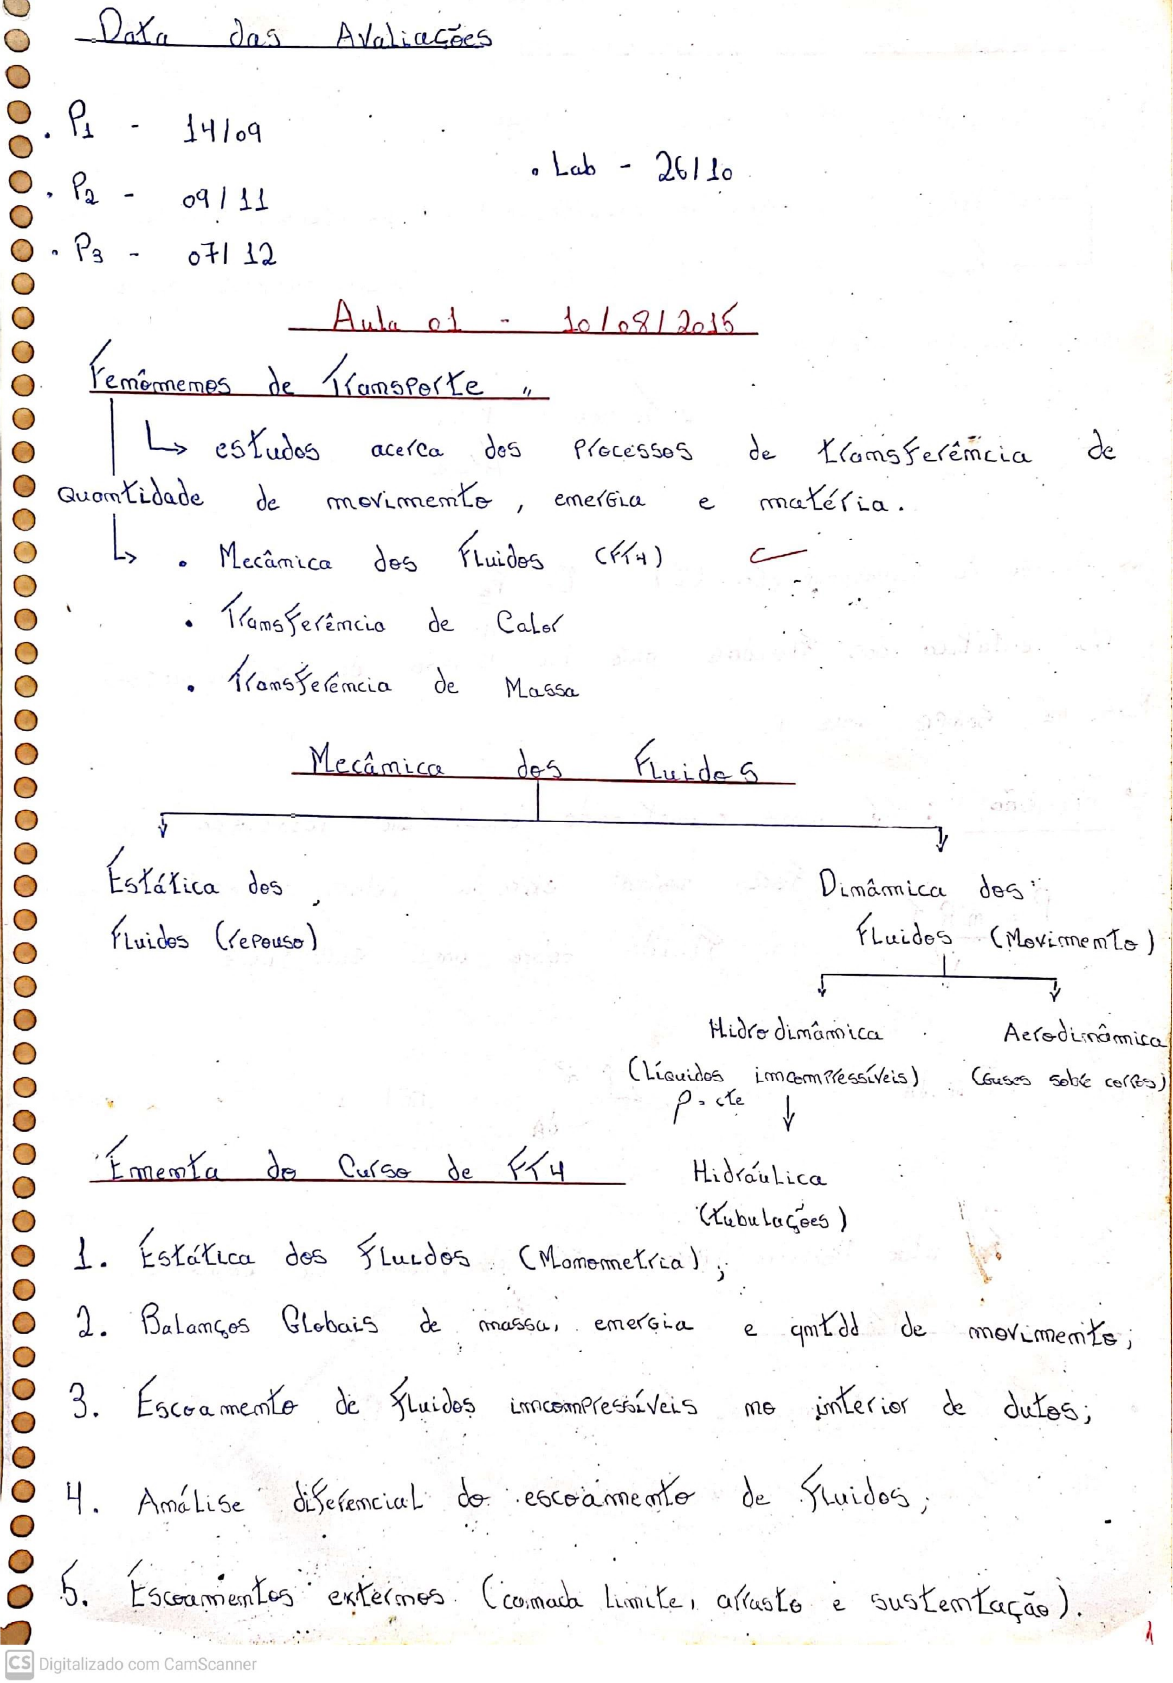 Data das Avaliações
. P1 - 14/09
. Lab - 26/10
. P2 - 09/11
. P3 - 07/12
Aula 01 - 10/08/2015
Fenômenos de Transporte "
↳ estudos acerca dos processos de transferência de
quantidade de movimento, energia e matéria.
↳ . Mecânica dos Fluidos (FT4)
. Transferência de Calor
. Transferência de Massa
Mecânica dos Fluidos
Estática dos
Fluidos (repouso)
Dinâmica dos
Fluidos (Movimento)
Hidrodinâmica
(Líquidos incompressíveis)
ρ = cte ↓
Aerodinâmica
(Gases sobre corpos)
Hidráulica
(tubulações)
Ementa do Curso de FT4
1. Estática dos fluidos (Manometria);
2. Balanços Globais de massa, energia e qntdd de movimento;
3. Escoamento de fluidos incompressíveis no interior de dutos;
4. Análise diferencial do escoamento de fluidos;
5. Escoamentos externos (camada limite, arrasto e sustentação).
1
CS Digitalizado com CamScanner